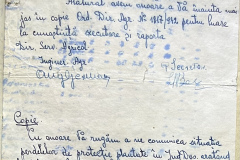 Alăturat avem onoare a Vă înainta mai
jos în copie Ord. Dir. Agr. Nr. 1867/942 pentru luare
la cunoștință executare și raporta
Dir. Serv. Agricol
Inginer Agr.
Copie
Cu onoare Vă rugăm a ne comunica situația
perdelelor de protecție plantate în Jud. Dvs. arătând